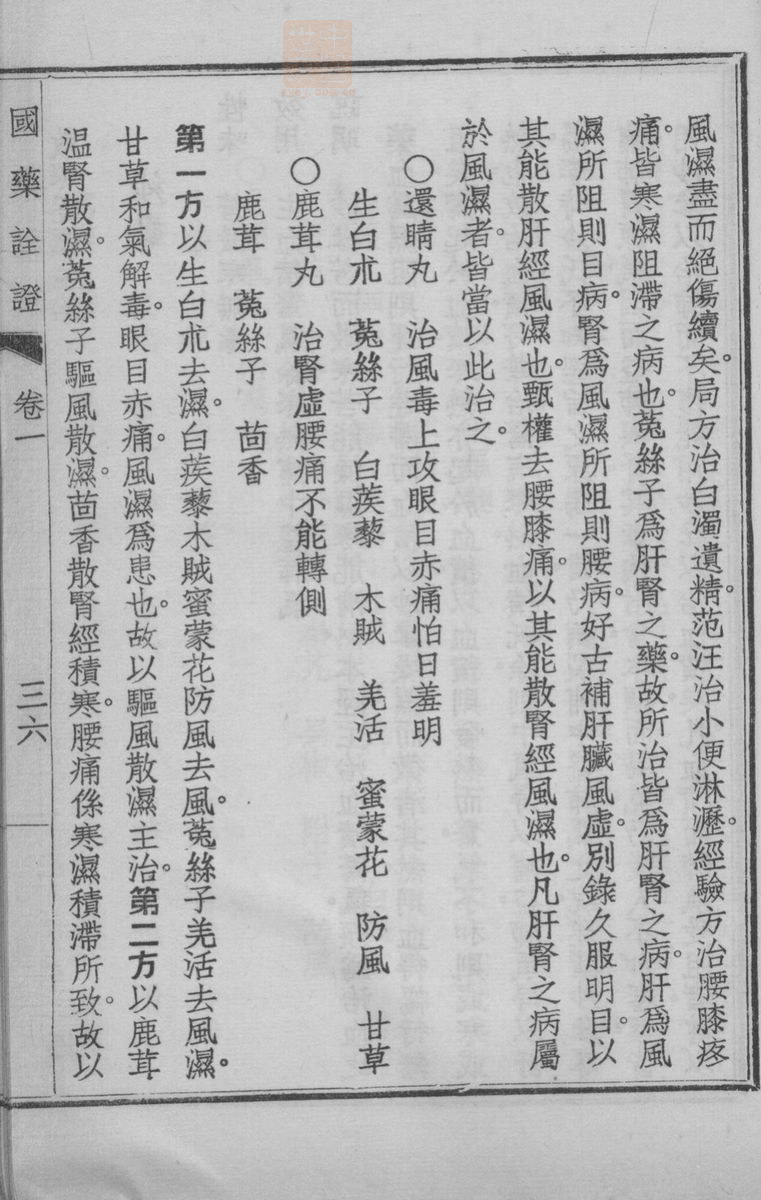 風濕盡而絕傷續矣。局方治白濁遺精。范汪治小便淋瀝。經驗方治腰膝疼
痛。皆寒濕阻滯之病也。菟絲子爲肝腎之藥。故所治皆爲肝腎之病。肝爲風
濕所阻則目病。腎爲風濕所阻則腰病。好古補肝臟風虛。別錄久服明目。以
其能散肝經風濕也。甄權去腰膝痛。以其能散腎經風濕也。凡肝腎之病屬
於風濕者。皆當以此治之。
○還睛丸　治風毒上攻眼目赤痛怕日羞明
生白朮　菟絲子　白蒺藜　木賊　羌活　蜜蒙花　防風　甘草
○鹿茸丸　治腎虛腰痛不能轉側
鹿茸　菟絲子　茴香
第一方以生白朮去濕。白蒺藜木賊蜜蒙花防風去風。菟絲子羌活去風濕。
甘草和氣解毒。眼目赤痛。風濕爲患也。故以驅風散濕主治。第二方以鹿茸
温腎散濕。菟絲子驅風散濕。茴香散腎經積寒。腰痛係寒濕積滯所致。故以
國藥詮證　卷一　三六